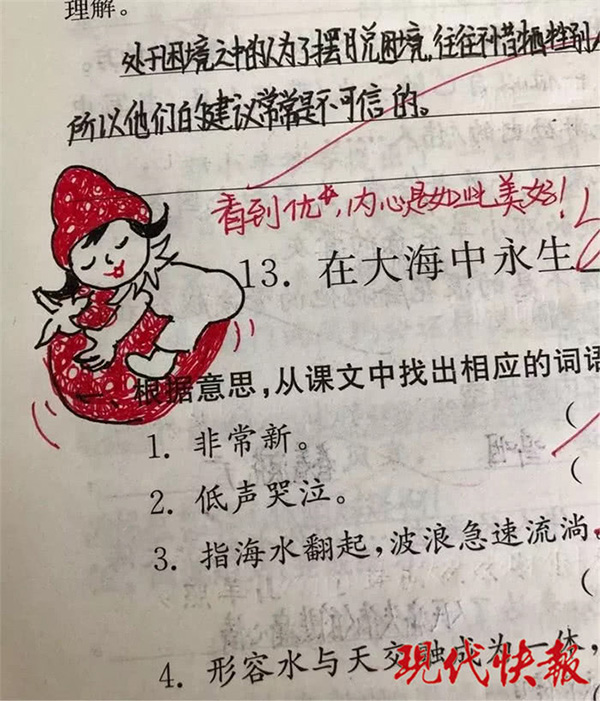 理解。
处于困境之中的人为了摆脱困境,往往不惜牺牲别
所以他们的建议常常是不可信的。
看到优☆,内心是如此美好!
13. 在大海中永生
根据意思,从课文中找出相应的词语
1. 非常新。 (
2. 低声哭泣。 (
3. 指海水翻起,波浪急速流淌
(
4. 形容水与天交融成为一体,
现代快報